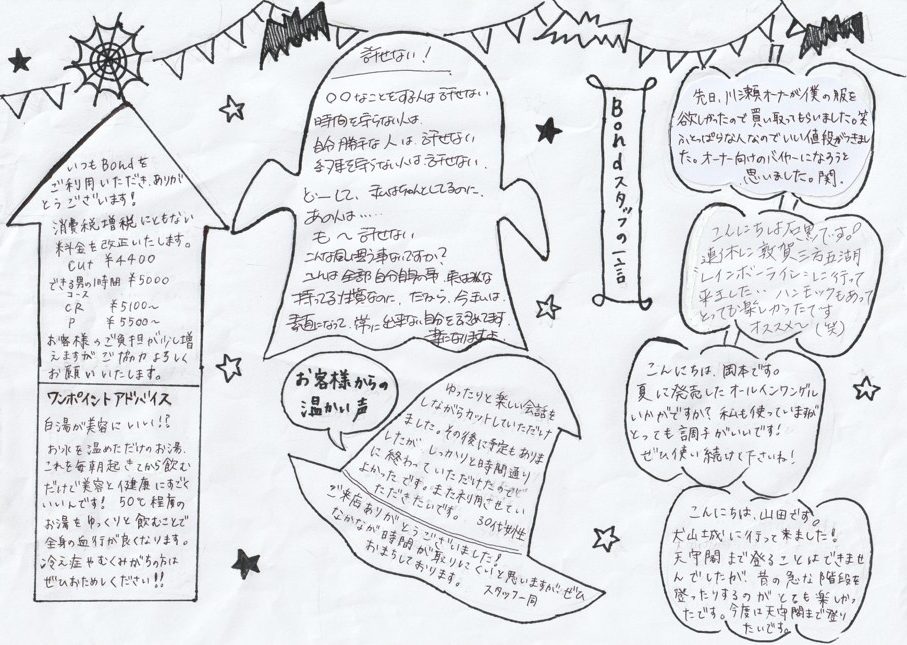 いつもBondを
ご利用いただき、ありが
とうございます！
消費税増税にともない
料金を改正いたします。
Cut ¥4400
できる男の1時間 ¥5000
コース
CR ¥5100〜
P ¥5500〜
お客様のご負担が少し増
えますがご協力よろしく
お願いいたします。
ワンポイントアドバイス
白湯が美容にいい！？
お水を温めただけのお湯、
これを毎朝起きてから飲む
だけで美容と健康にすごく
いいんです！ 50℃程度の
お湯をゆっくりと飲むことで
全身の血行が良くなります。
冷え症やむくみがちの方は
ぜひおためしください！！
許せない！
〇〇なことをする人は許せない
時間を守らない人は、
自分勝手な人は、許せない
約束を守らない人は、許せない、
どーして、私はちゃんとしてるのに、
あの人は……
も〜許せない
こんな風に思う事ないですか？
これは全部自分自身の事、実はみんな
持ってる性質なのに、だから、今年は、
素直になって、常に出来ない自分を認めてます。
楽になりますよ。
お客様からの
温かい声
ゆったりと楽しい会話を
しながらカットしていただけ
ました。その後に予定もありま
したが、しっかりと時間通り
に終わっていただけたので
よかったです。また利用させてい
ただきたいです。 30代女性
ご来店ありがとうございました！
なかなか時間が取りにくいと思いますが、ぜひ
おまちしております。
スタッフ一同
Bondスタッフの一言
先日、川瀬オーナーが僕の服を
欲しかったので買い取ってもらいました。笑
ふとっぱらな人なのでいい値段がつきまし
た。オーナー向けのバイヤーになろうと
思いました。関.
こんにちは石黒です。!
連休に敦賀三方五湖
レインボーラインに行って
来ました.. ハンモックもあって
とっても楽しかったです
オススメ〜（笑）
こんにちは、岡本です。
夏に発売したオールインワンゲル
いかがですか？私も使っていますが
とっても調子がいいです！
ぜひ使い続けて下さいね！
こんにちは、山田です。
犬山城に行って来ました！
天守閣まで登ることはできませ
んでしたが、昔の急な階段を
登ったりするのがとても楽しかっ
たです。今度は天守閣まで登り
たいです。